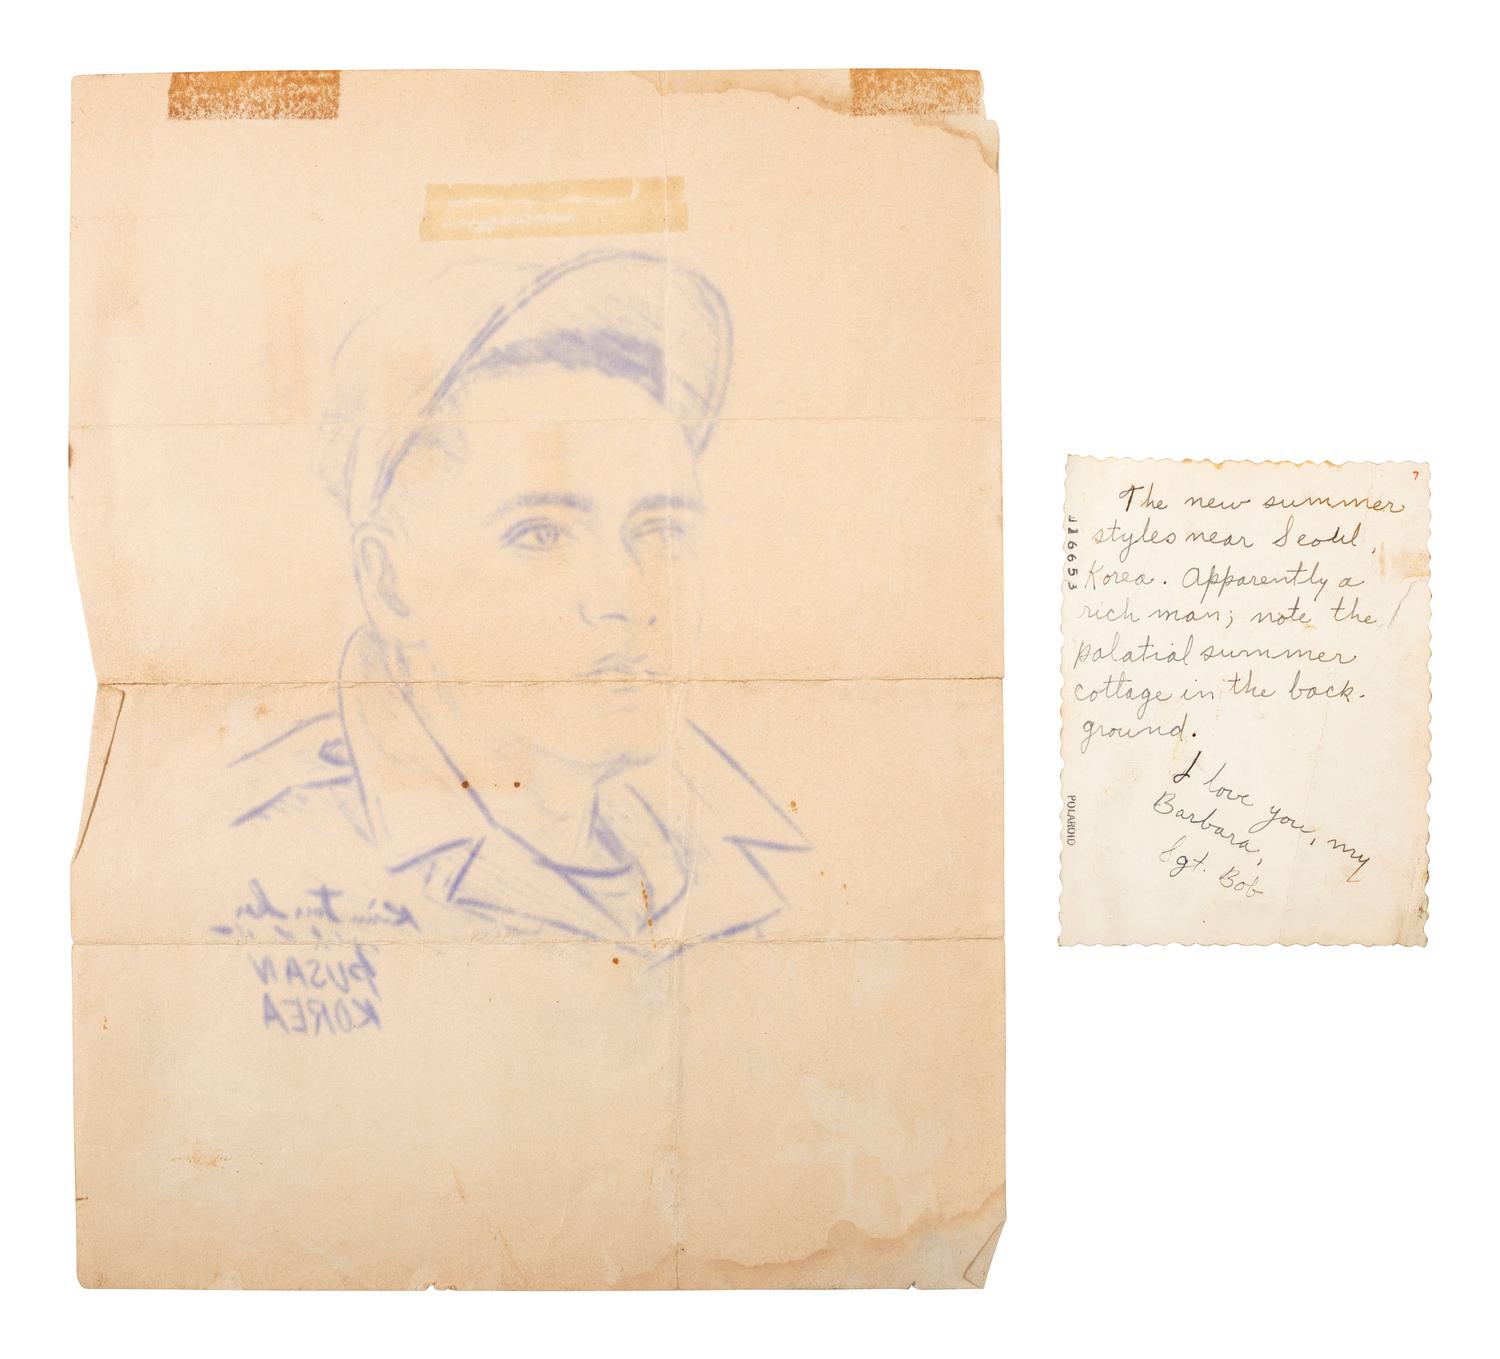 PUSAN
KOREA
7
The new summer
styles near Seoul,
Korea. Apparently a
rich man; note the
palatial summer
cottage in the back-
ground.
I love you, my
Barbara,
Sgt. Bob
116653
POLAROID